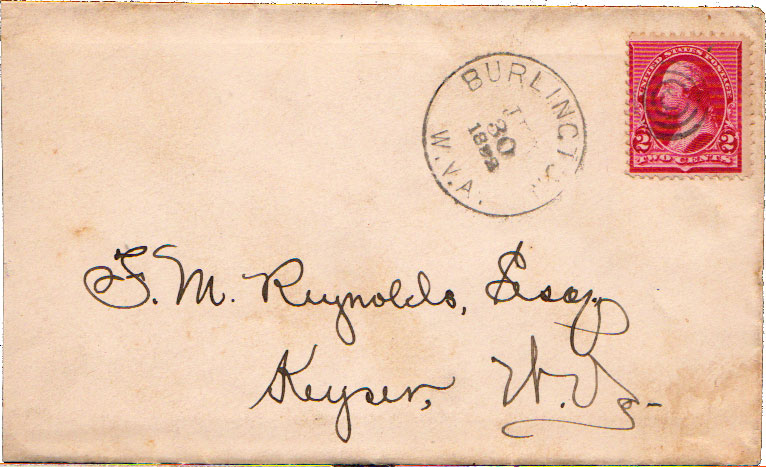 BURLINGTON
30
1892
W.V.A.
UNITED STATES POSTAGE
2 2
TWO CENTS
F. M. Reynolds, Esq,
Keyser, W. Va-